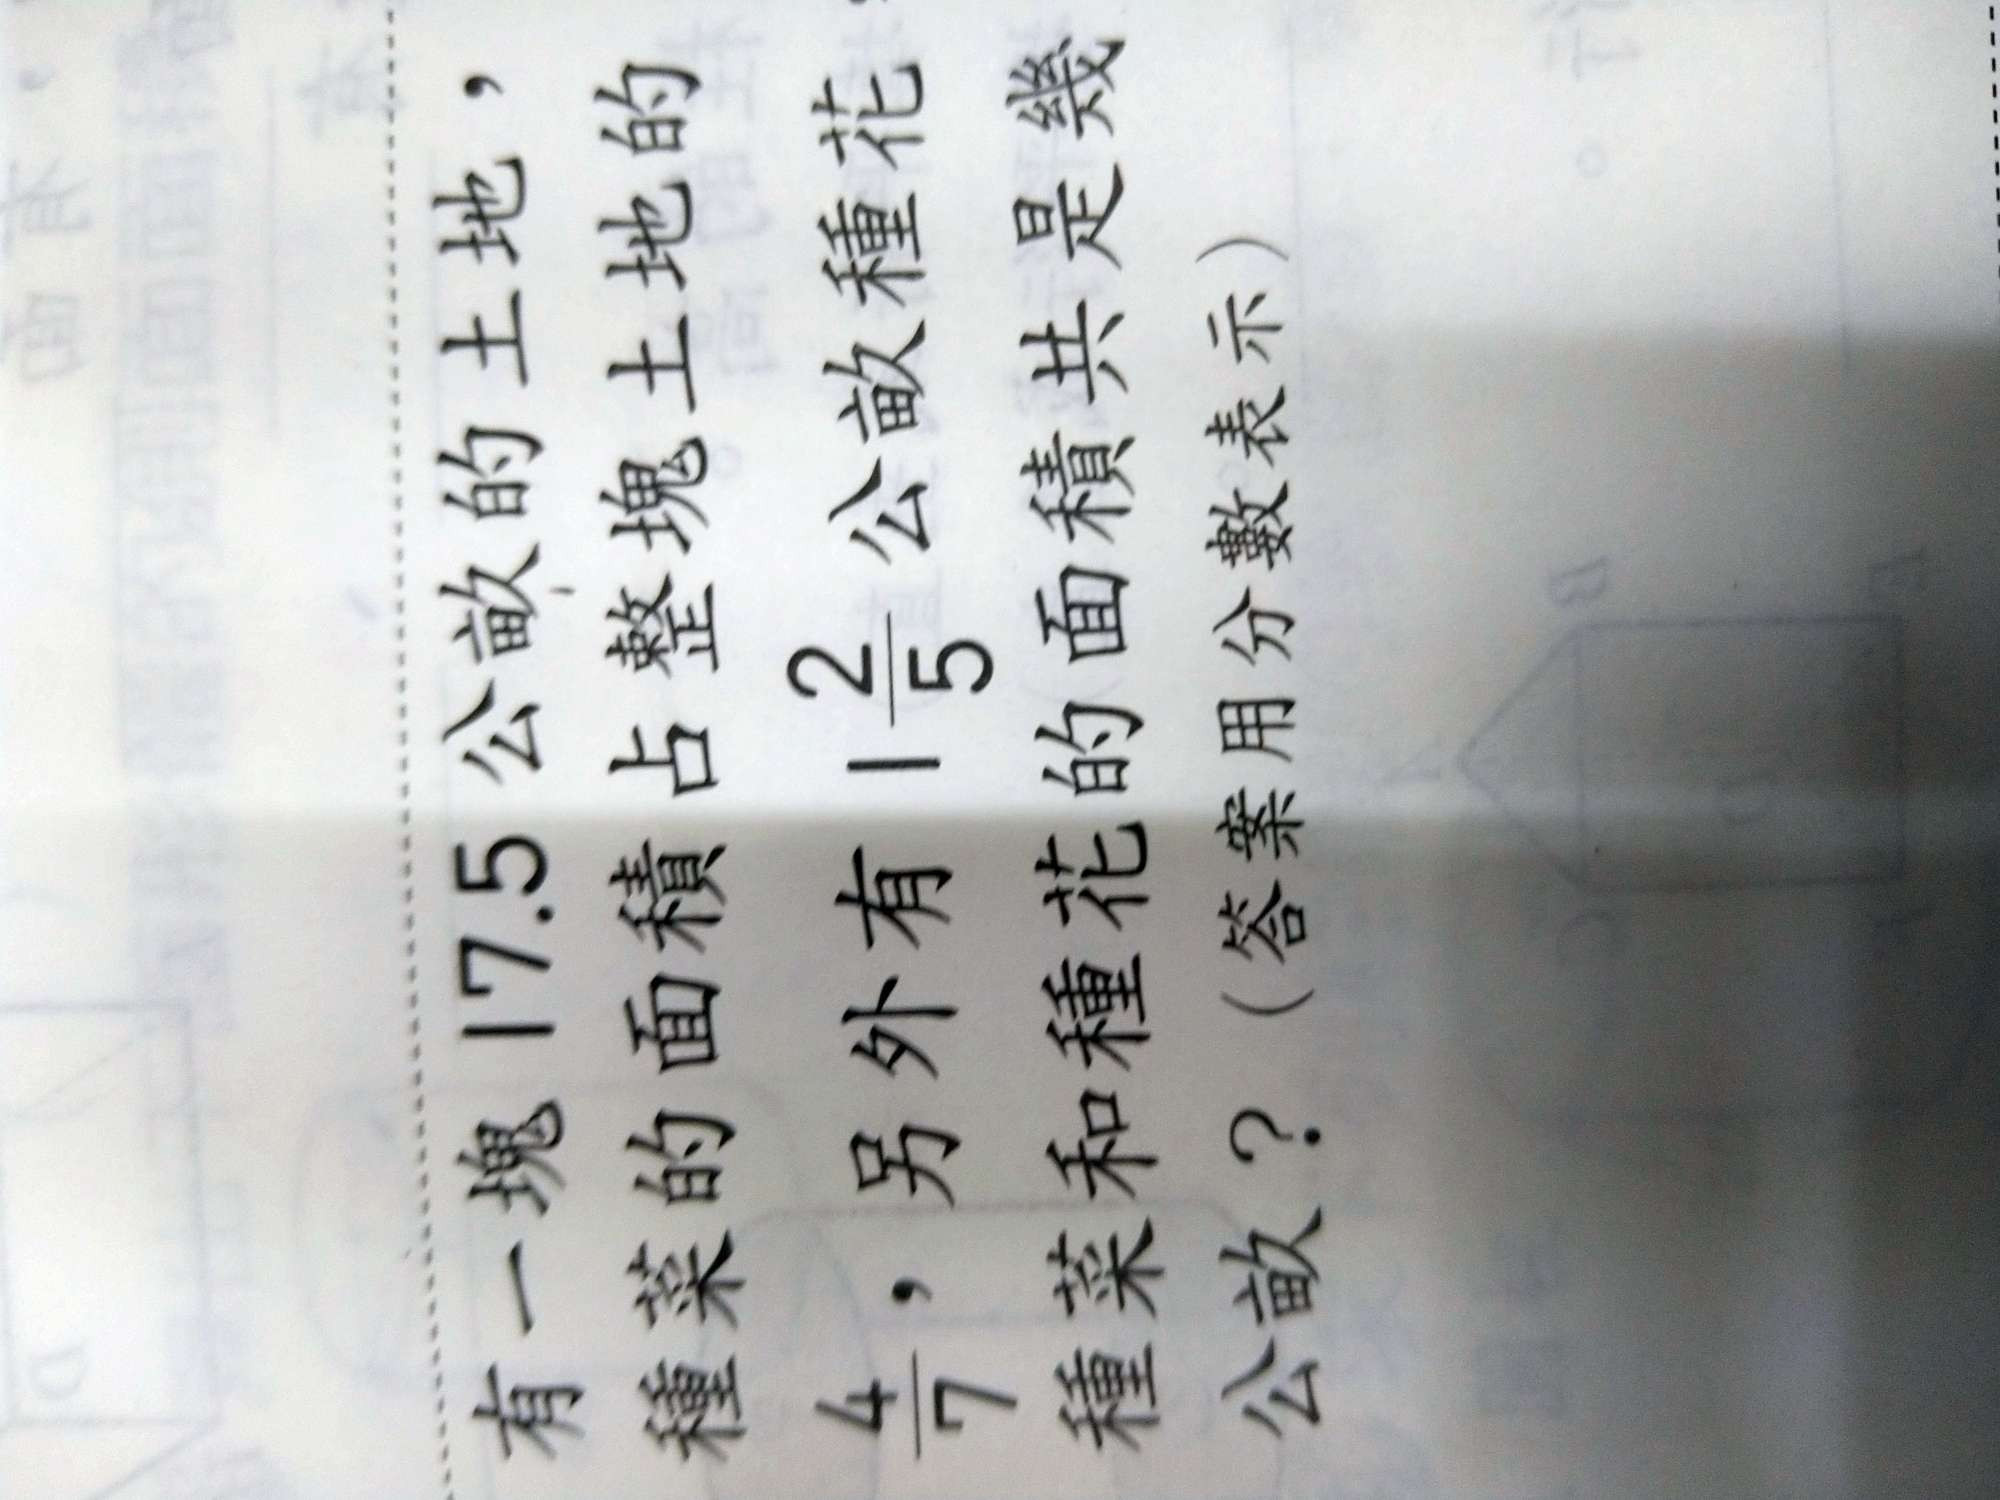 有一塊 17.5 公畝的土地，
種菜的面積占整塊土地的
4/7，另外有 1 2/5 公畝種花，
種菜和種花的面積共是幾
公畝？（答案用分數表示）